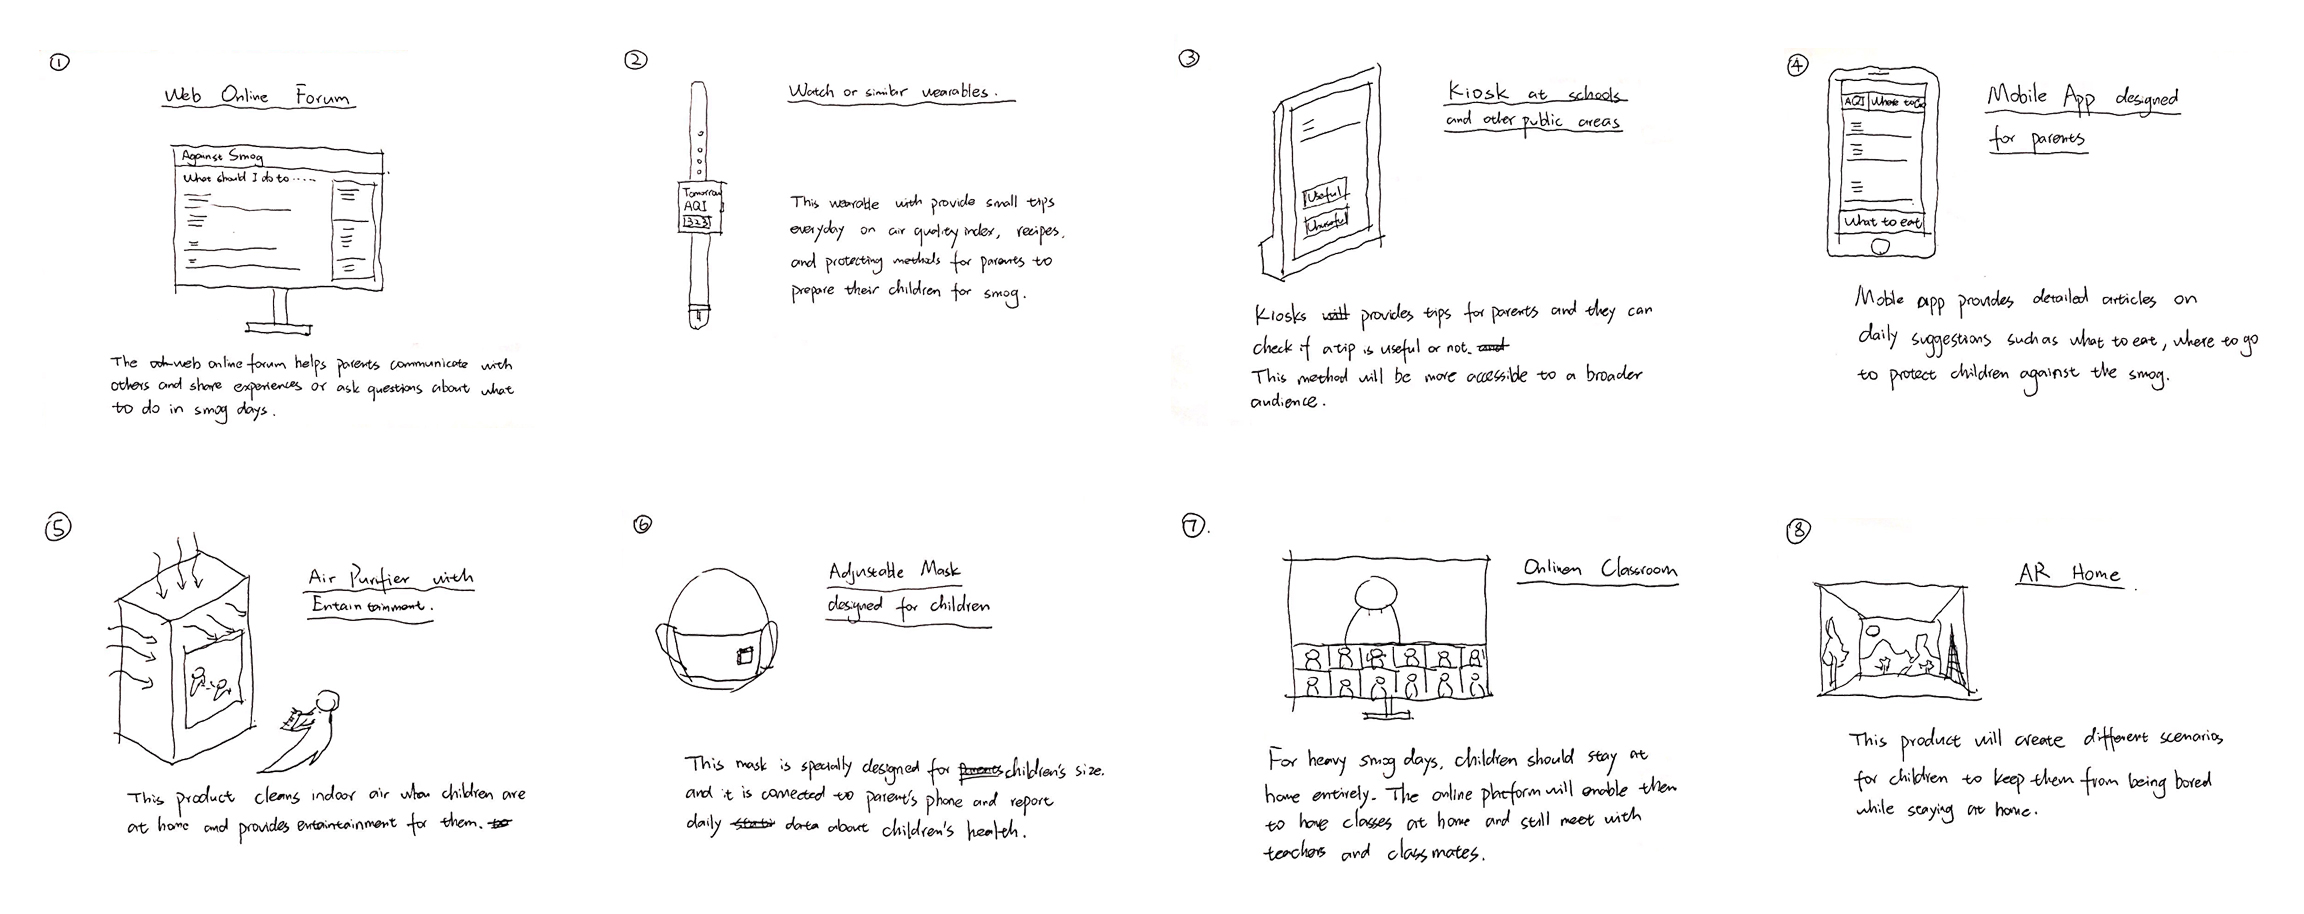 ①
Web Online Forum
Against Smog
What should I do to .....
The web online forum helps parents communicate with
others and share experiences or ask questions about what
to do in smog days.
②
Watch or similar wearables.
Tomorrow
AQI
323
This wearable with provide small tips
everyday on air quality index, recipes,
and protecting methods for parents to
prepare their children for smog.
③
Kiosk at schools
and other public areas
Useful
Unuseful
Kiosks will provides tips for parents and they can
check if a tip is useful or not. and
This method will be more accessible to a broader
audience.
④
Mobile App designed
for parents
AQI Where to Go
What to eat
Moble app provides detailed articles on
daily suggestions such as what to eat, where to go
to protect children against the smog.
⑤
Air Purifier with
Entertainment.
This product cleans indoor air when children are
at home and provides entaintainment for them. to
⑥
Adjustable Mask
designed for children
This mask is specially designed for parents children's size.
and it is connected to parent's phone and report
daily data about children's health.
⑦.
Onlinen Classroom
For heavy smog days, children should stay at
home entirely. The online platform will enable them
to have classes at home and still meet with
teachers and classmates.
⑧
AR Home.
This product will create different scenarios
for children to keep them from being bored
while staying at home.